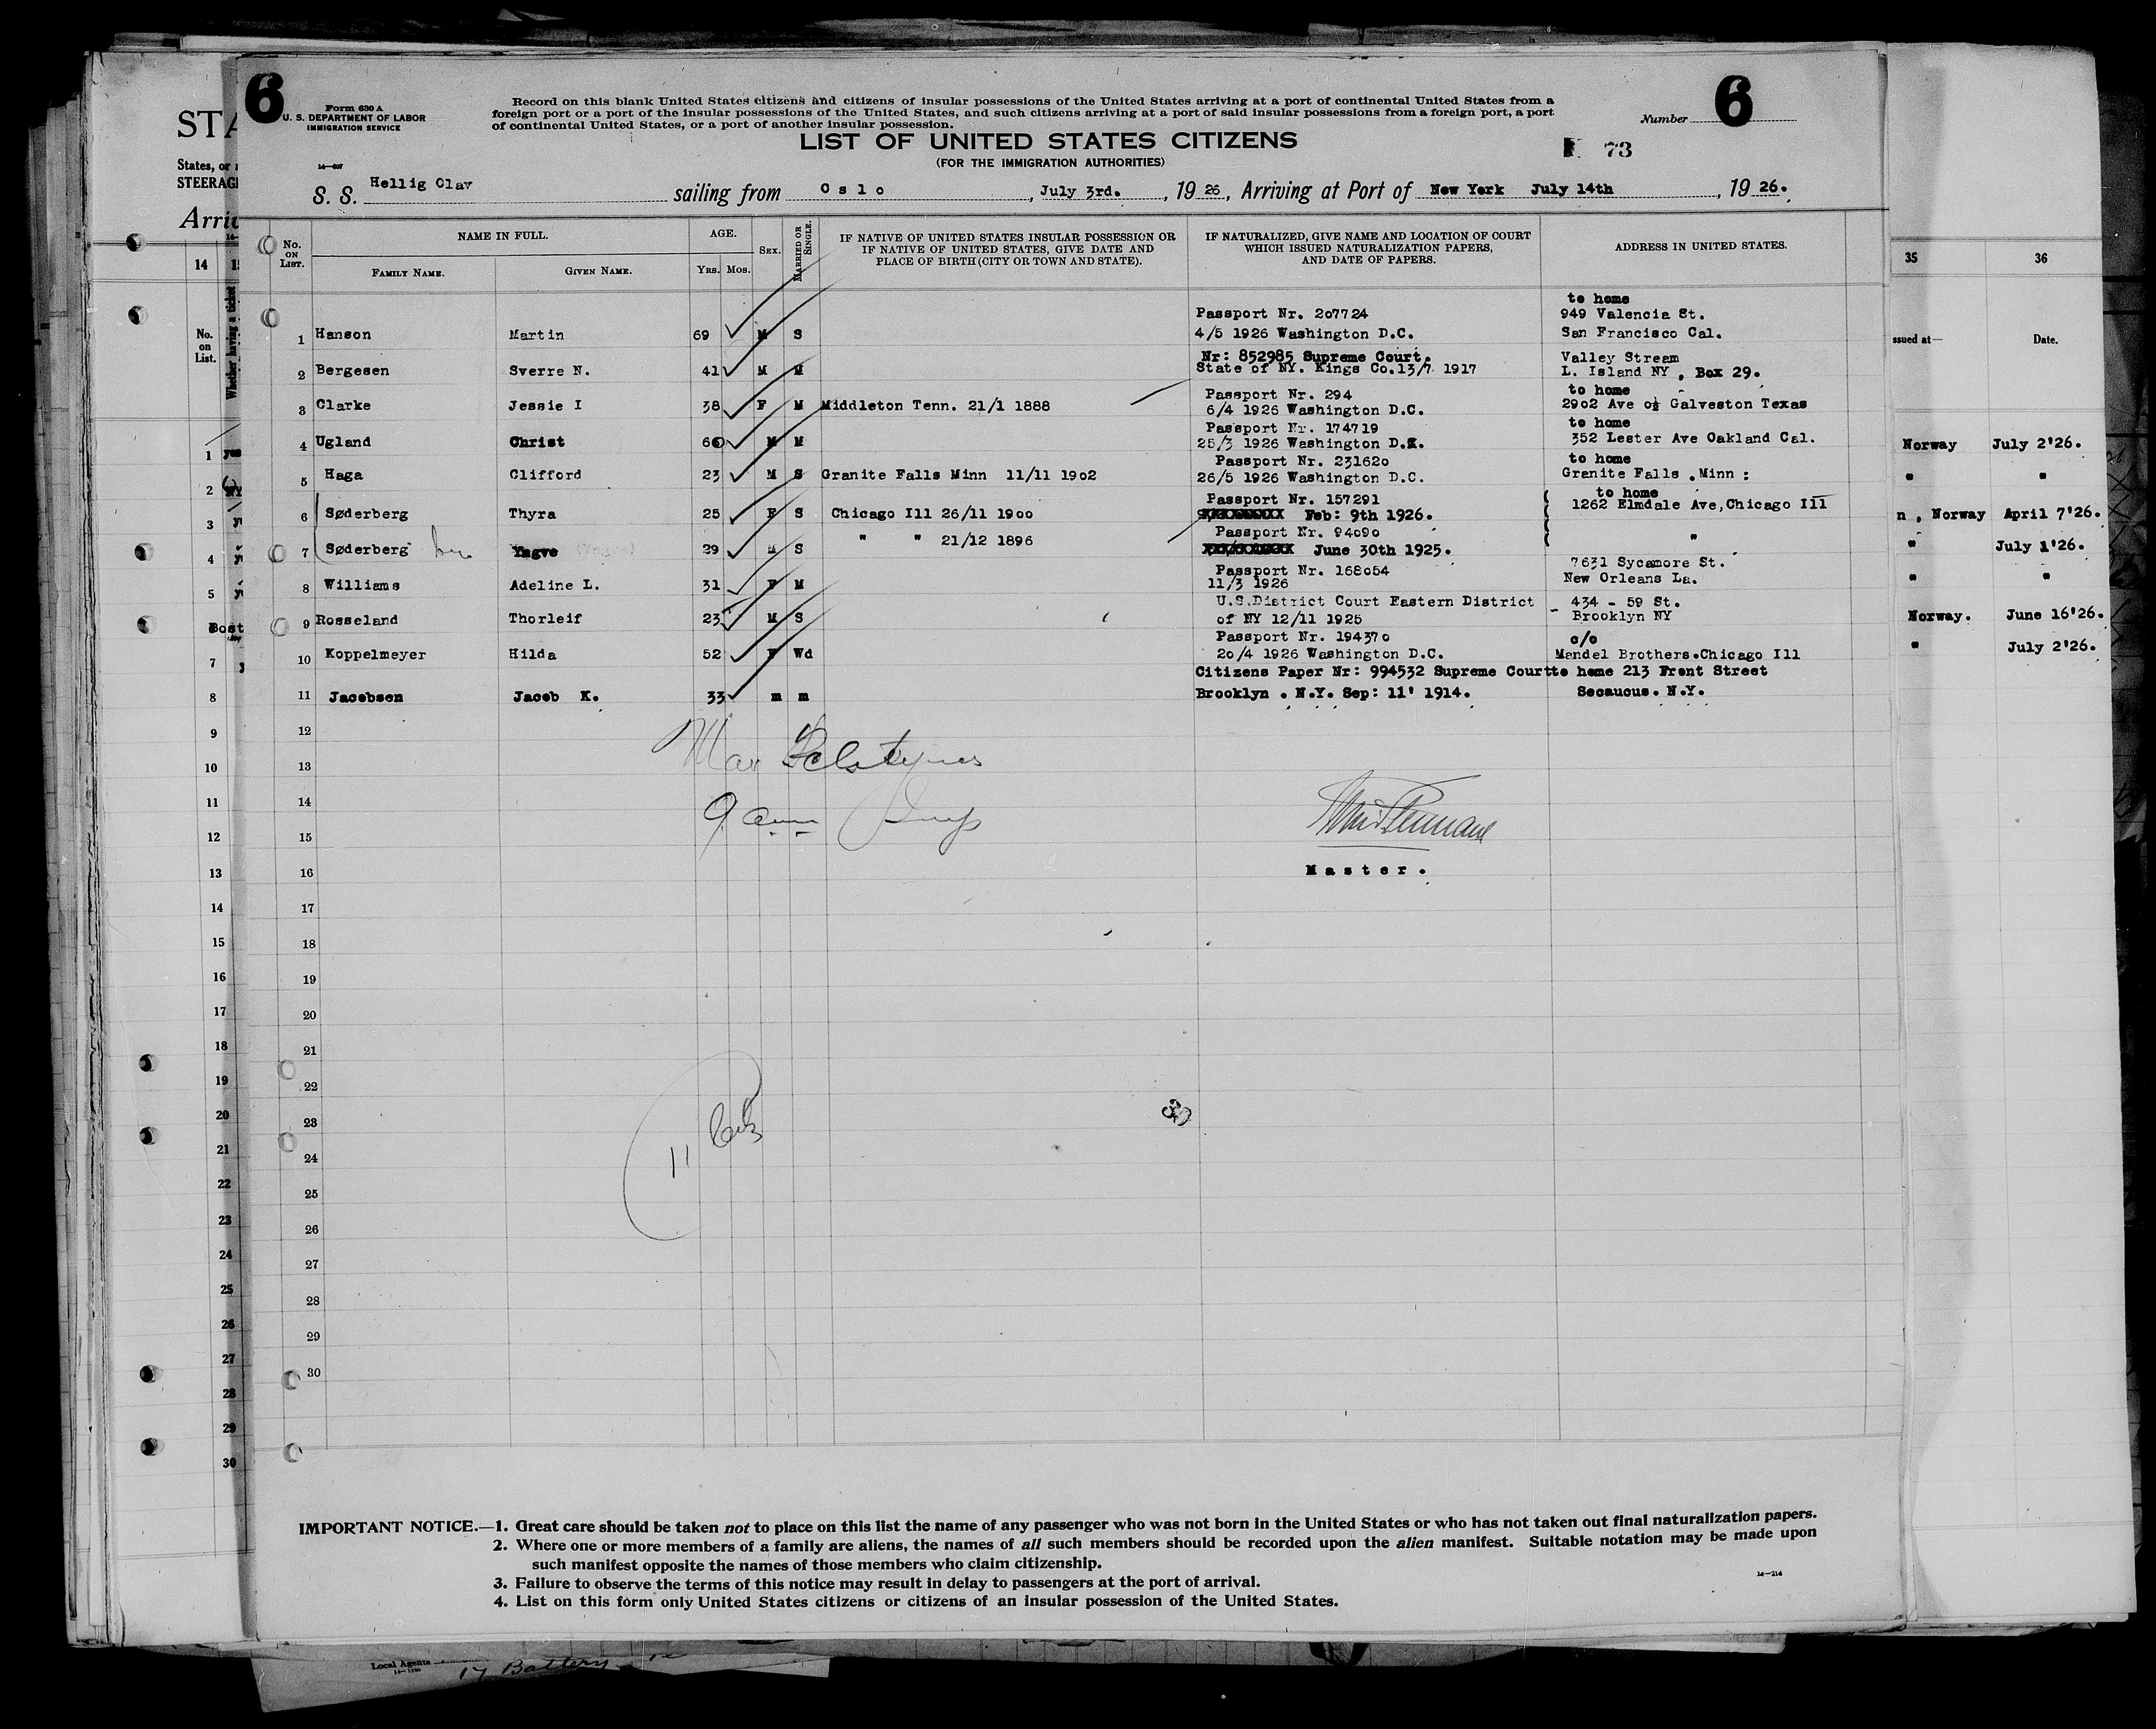 6
Form 630 A
U. S. DEPARTMENT OF LABOR
IMMIGRATION SERVICE
Record on this blank United States citizens and citizens of insular possessions of the United States arriving at a port of continental United States from a
foreign port or a port of the insular possessions of the United States, and such citizens arriving at a port of said insular possessions from a foreign port, a port
of continental United States, or a port of another insular possession.
Number 6
LIST OF UNITED STATES CITIZENS
(FOR THE IMMIGRATION AUTHORITIES)
73
S. S. Hellig Olav sailing from Oslo, July 3rd., 1926, Arriving at Port of New York July 14th, 1926.
No. ON LIST.
NAME IN FULL.
FAMILY NAME.
GIVEN NAME.
AGE.
Yrs. Mos.
SEX.
MARRIED OR SINGLE.
IF NATIVE OF UNITED STATES INSULAR POSSESSION OR
IF NATIVE OF UNITED STATES, GIVE DATE AND
PLACE OF BIRTH (CITY OR TOWN AND STATE).
IF NATURALIZED, GIVE NAME AND LOCATION OF COURT
WHICH ISSUED NATURALIZATION PAPERS,
AND DATE OF PAPERS.
ADDRESS IN UNITED STATES.
to home
Passport Nr. 207724 949 Valencia St.
1 Hanson Martin 69 M S 4/5 1926 Washington D.C. San Francisco Cal.
Nr: 852985 Supreme Court. Valley Streem
2 Bergesen Sverre N. 41 M M State of NY. Kings Co.13/7 1917 L. Island NY, Box 29.
Passport Nr. 294 to home
3 Clarke Jessie I 38 F M Middleton Tenn. 21/1 1888 6/4 1926 Washington D.C. 2902 Ave o½ Galveston Texas
Passport Nr. 174719 to home
4 Ugland Christ 60 M M 25/3 1926 Washington D.C. 352 Lester Ave Oakland Cal.
Passport Nr. 231620 to home
5 Haga Clifford 23 M S Granite Falls Minn 11/11 1902 26/5 1926 Washington D.C. Granite Falls .Minn :
Passport Nr. 157291 to home
6 Søderberg Thyra 25 F S Chicago Ill 26/11 1900 Feb: 9th 1926. 1262 Elmdale Ave,Chicago Ill
Passport Nr. 94090
7 Søderberg Yngve 29 M S " " 21/12 1896 June 30th 1925. "
Passport Nr. 168054 7631 Sycamore St.
8 Williams Adeline L. 31 F M 11/3 1926 New Orleans La.
U.S.District Court Eastern District 434 - 59 St.
9 Rosseland Thorleif 23 M S of NY 12/11 1925 Brooklyn NY
Passport Nr. 194370 c/o
10 Koppelmeyer Hilda 52 F Wd 20/4 1926 Washington D.C. Mandel Brothers.Chicago Ill
Citizens Paper Nr: 994532 Supreme Court to home 213 Front Street
11 Jacobsen Jacob K. 33 m m Brooklyn . N.Y. Sep: 11' 1914. Secaucus. N.Y.
12
13
14
9 am
15
16
Master.
17
18
19
20
21
22
23
11
24
25
26
27
28
29
30
IMPORTANT NOTICE.—1. Great care should be taken not to place on this list the name of any passenger who was not born in the United States or who has not taken out final naturalization papers.
2. Where one or more members of a family are aliens, the names of all such members should be recorded upon the alien manifest. Suitable notation may be made upon
such manifest opposite the names of those members who claim citizenship.
3. Failure to observe the terms of this notice may result in delay to passengers at the port of arrival.
4. List on this form only United States citizens or citizens of an insular possession of the United States.
14—214
STA
States, or
STEERAG
Arri
14
No. on List.
Whether having a ticket
1
2
3
4
5
Bost
7
8
9
10
11
12
13
14
15
16
17
18
19
20
21
22
23
24
25
26
27
28
29
30
35 36
ssued at— Date.
Norway July 2'26.
" "
n , Norway April 7'26.
" July 1'26.
" "
Norway. June 16'26.
" July 2'26.
Local Agents
17 Battery